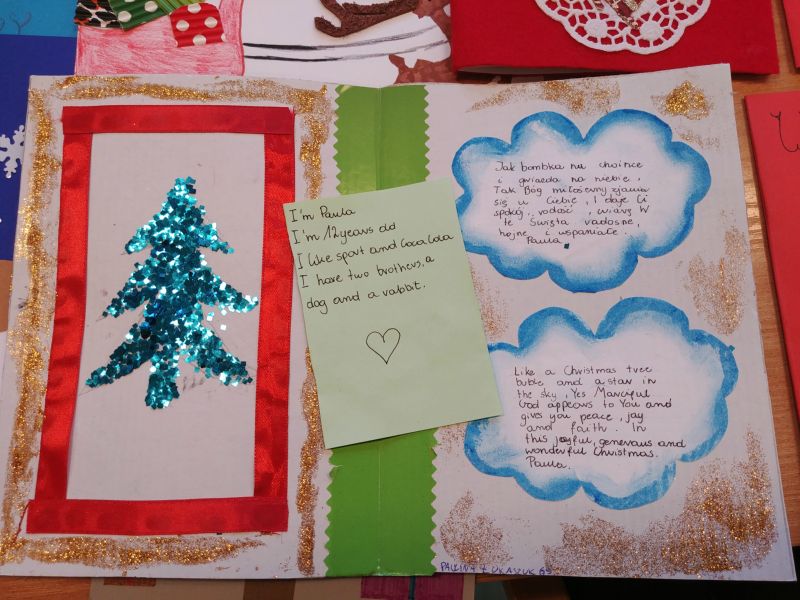 I'm Paula
I'm 12 years old
I like sport and Coca Cola
I have two brothers, a
dog and a rabbit.
Jak bombka na choince
i gwiazda na niebie.
Tak Bóg miłosierny zjawia
się u Ciebie, I daje Ci
spokój, radość, wiarę W
te Święta radosne,
hojne i wspaniałe.
Paula
Like a Christmas tree
buble and a star in
the sky, Yes Merciful
God appears to You and
gives you peace, joy
and faith. In
this joyful, generous and
wonderful Christmas.
Paula.